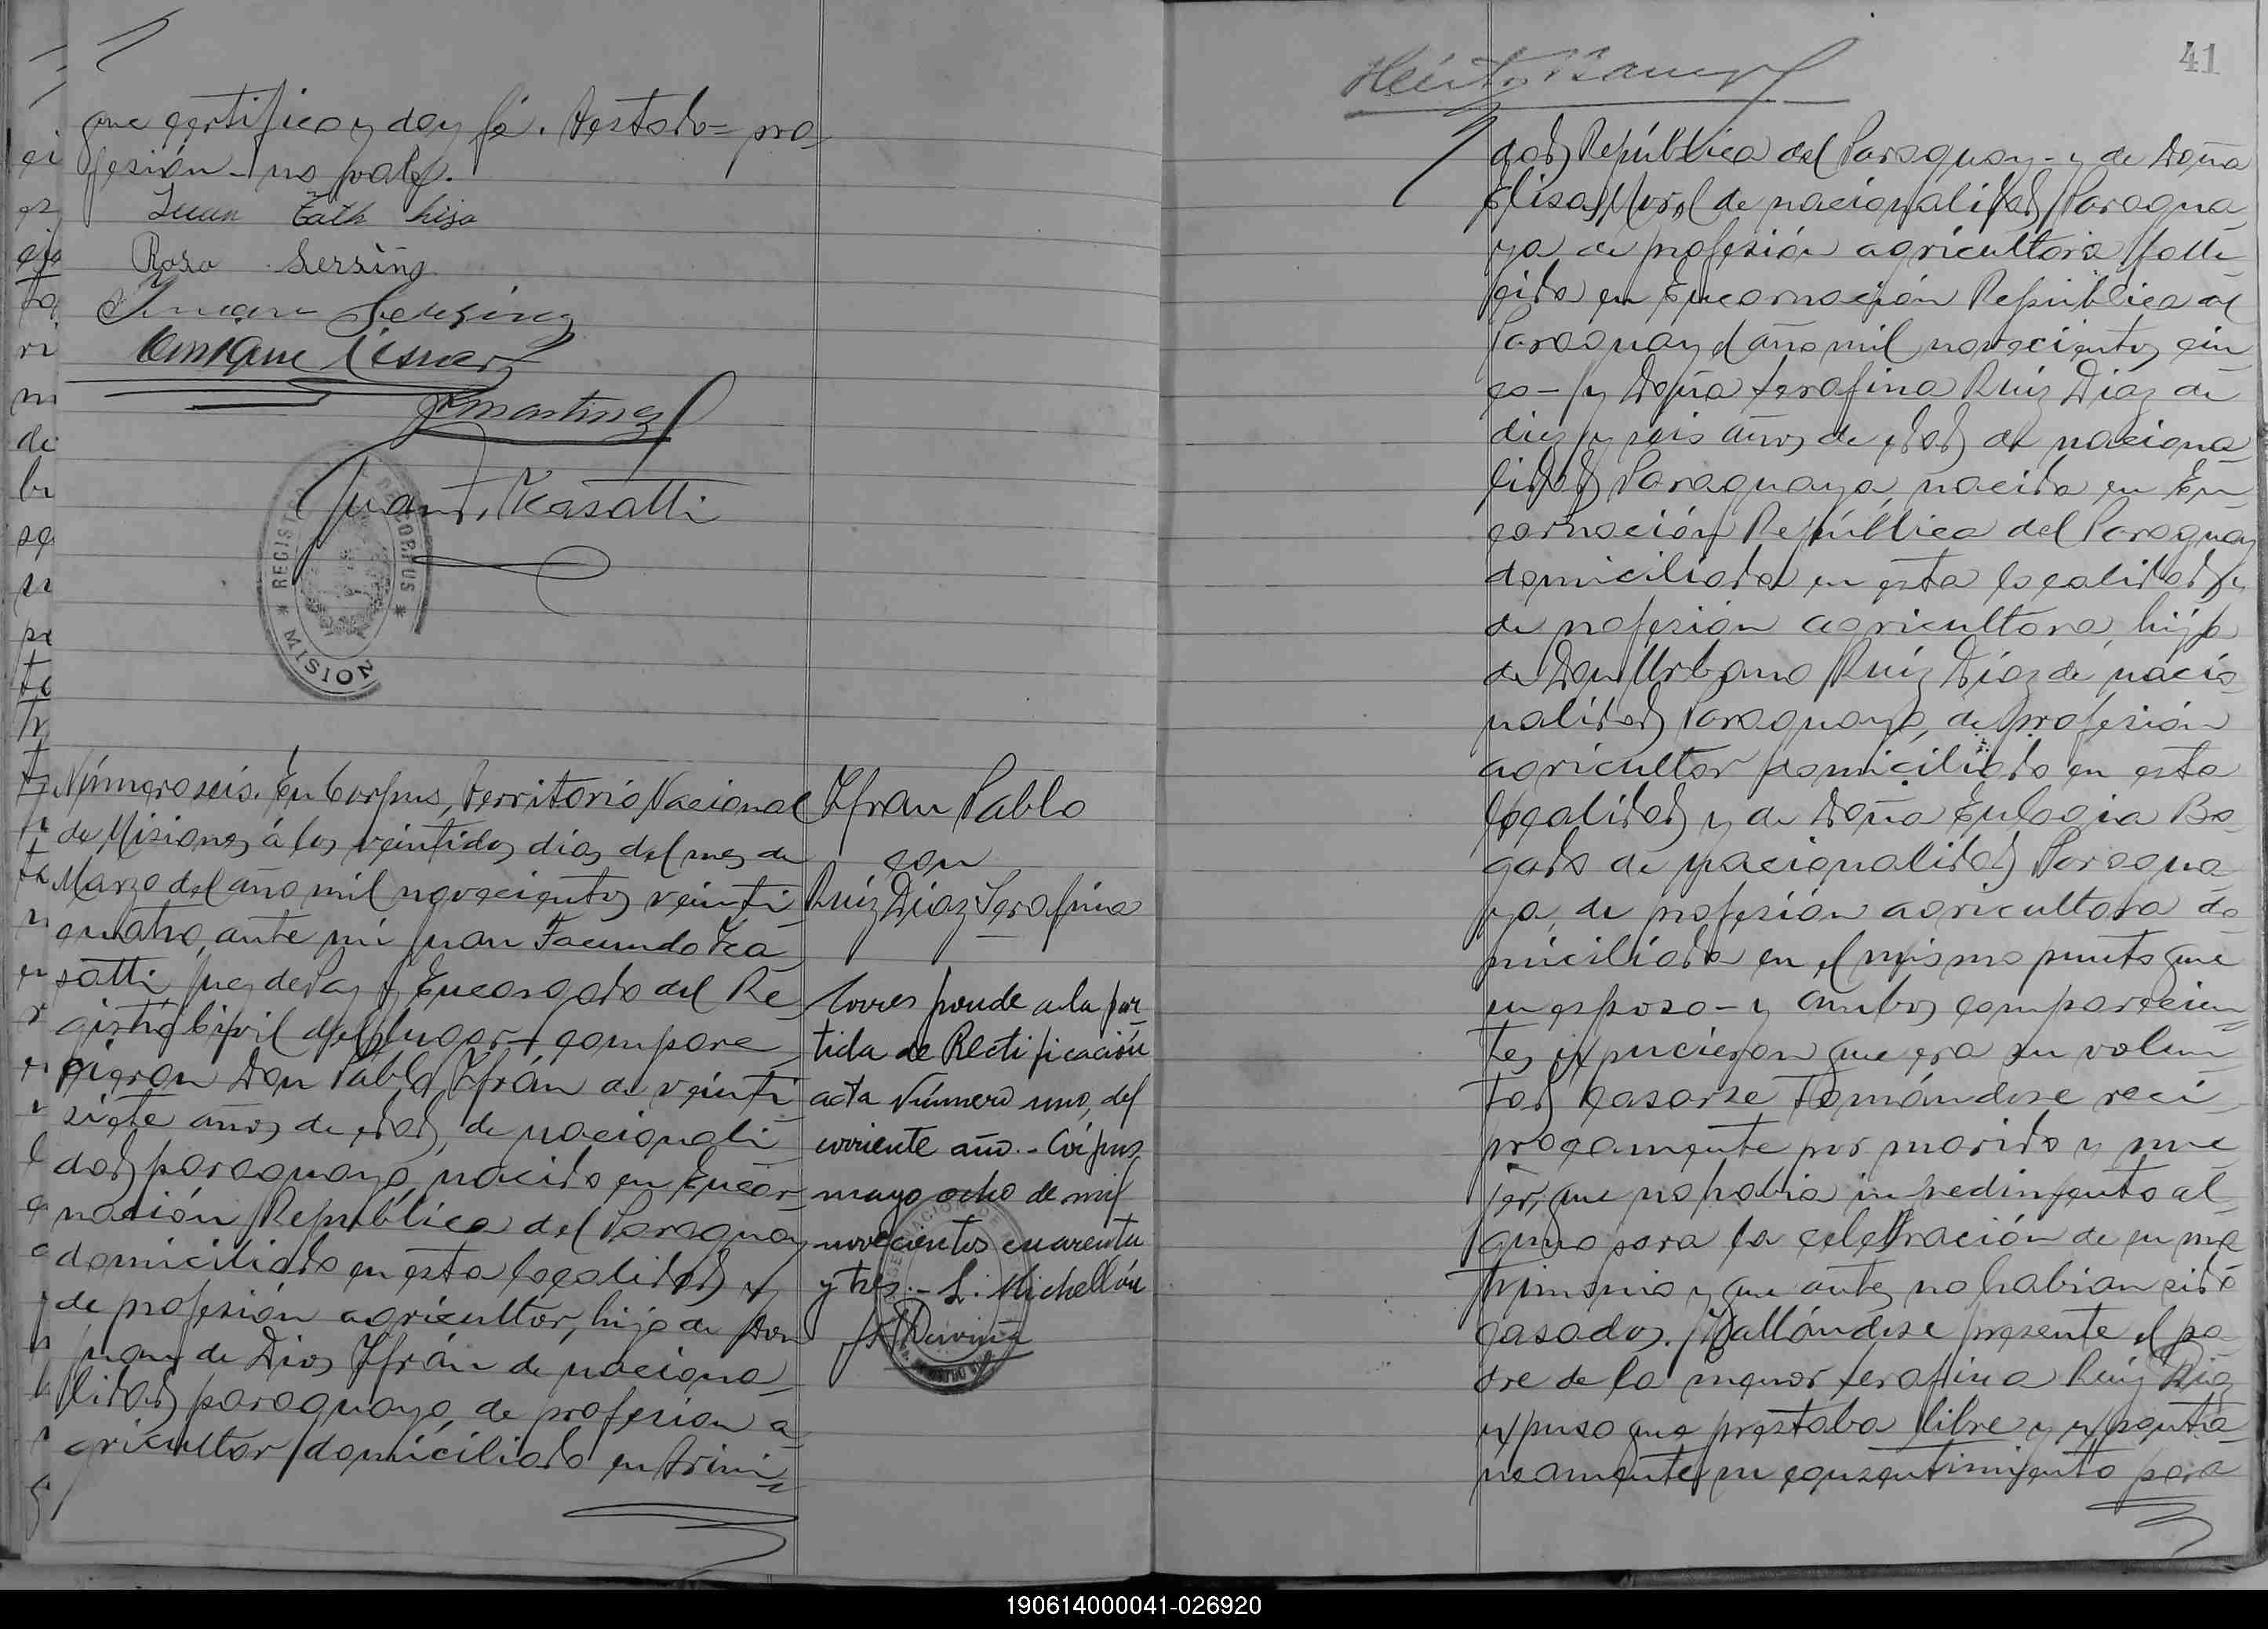 que certifico y doy fé. Testado= pro-
fesión- no vale.
Juan hijo
Rosa Sersing
Juan Sersing
Enrique
Martinez
Juan F. Icasatti
REGISTRO CORPUS
* MISION *
Número seis. En Corpus, Territorio Nacional
de Misiones á los veintidos dias del mes de
Marzo del año mil novecientos veinti
cuatro, ante mi Juan Facundo Ica
satti, Juez de Paz y Encargado del Re
gistro Civil del lugar- compare
cieron Don Pablo Ifrán de veinti
siete años de edad, de nacionali
dad paraguaya, nacido en Encar-
nación República del Paraguay
domiciliado en esta localidad y
de profesión agricultor, hijo de Don
Juan de Dios Ifrán de naciona-
lidad paraguaya, de profesion a-
gricultor domiciliado en Trini-
Ifran Pablo
con
Ruiz Diaz Serafina
Corresponde a la par-
tida de Rectificación
acta Número uno, del
corriente año.- Corpus,
mayo ocho de mil
novecientos cuarenta
y tres.- L. Michellón
41
dad República del Paraguay- y de Doña
Elisa de nacionalidad Paragua
ya, de profesión agricultora falle-
cida en Encarnación República del
Paraguay el año mil novecientos cin
co- y Doña Serafina Ruiz Diaz de
diez y seis años de edad de naciona-
lidad Paraguaya, nacida en En
carnación República del Paraguay
domiciliada en esta localidad y
de profesión agricultora, hija
de Don Urbano Ruiz Diaz de nacio-
nalidad Paraguaya, de profesión
agricultor domiciliado en esta
localidad y de Doña Eulogia Bo-
gado de nacionalidad Paragua-
ya, de profesión agricultora do-
miciliada en el mismo punto que
su esposo- y ambos comparecien-
tes expucieron que era su volun-
tad casarse tomándose reci-
procamente por marido y mu-
jer, que no habia impedimento al-
guno para la celebración de su ma-
trimonio y que antes no habian sido
casados. Hallándose presente el pa-
dre de la menor Serafina Ruiz Diaz
expuso que prestaba libre y exponta-
neamente su consentimiento para
190614000041-026920